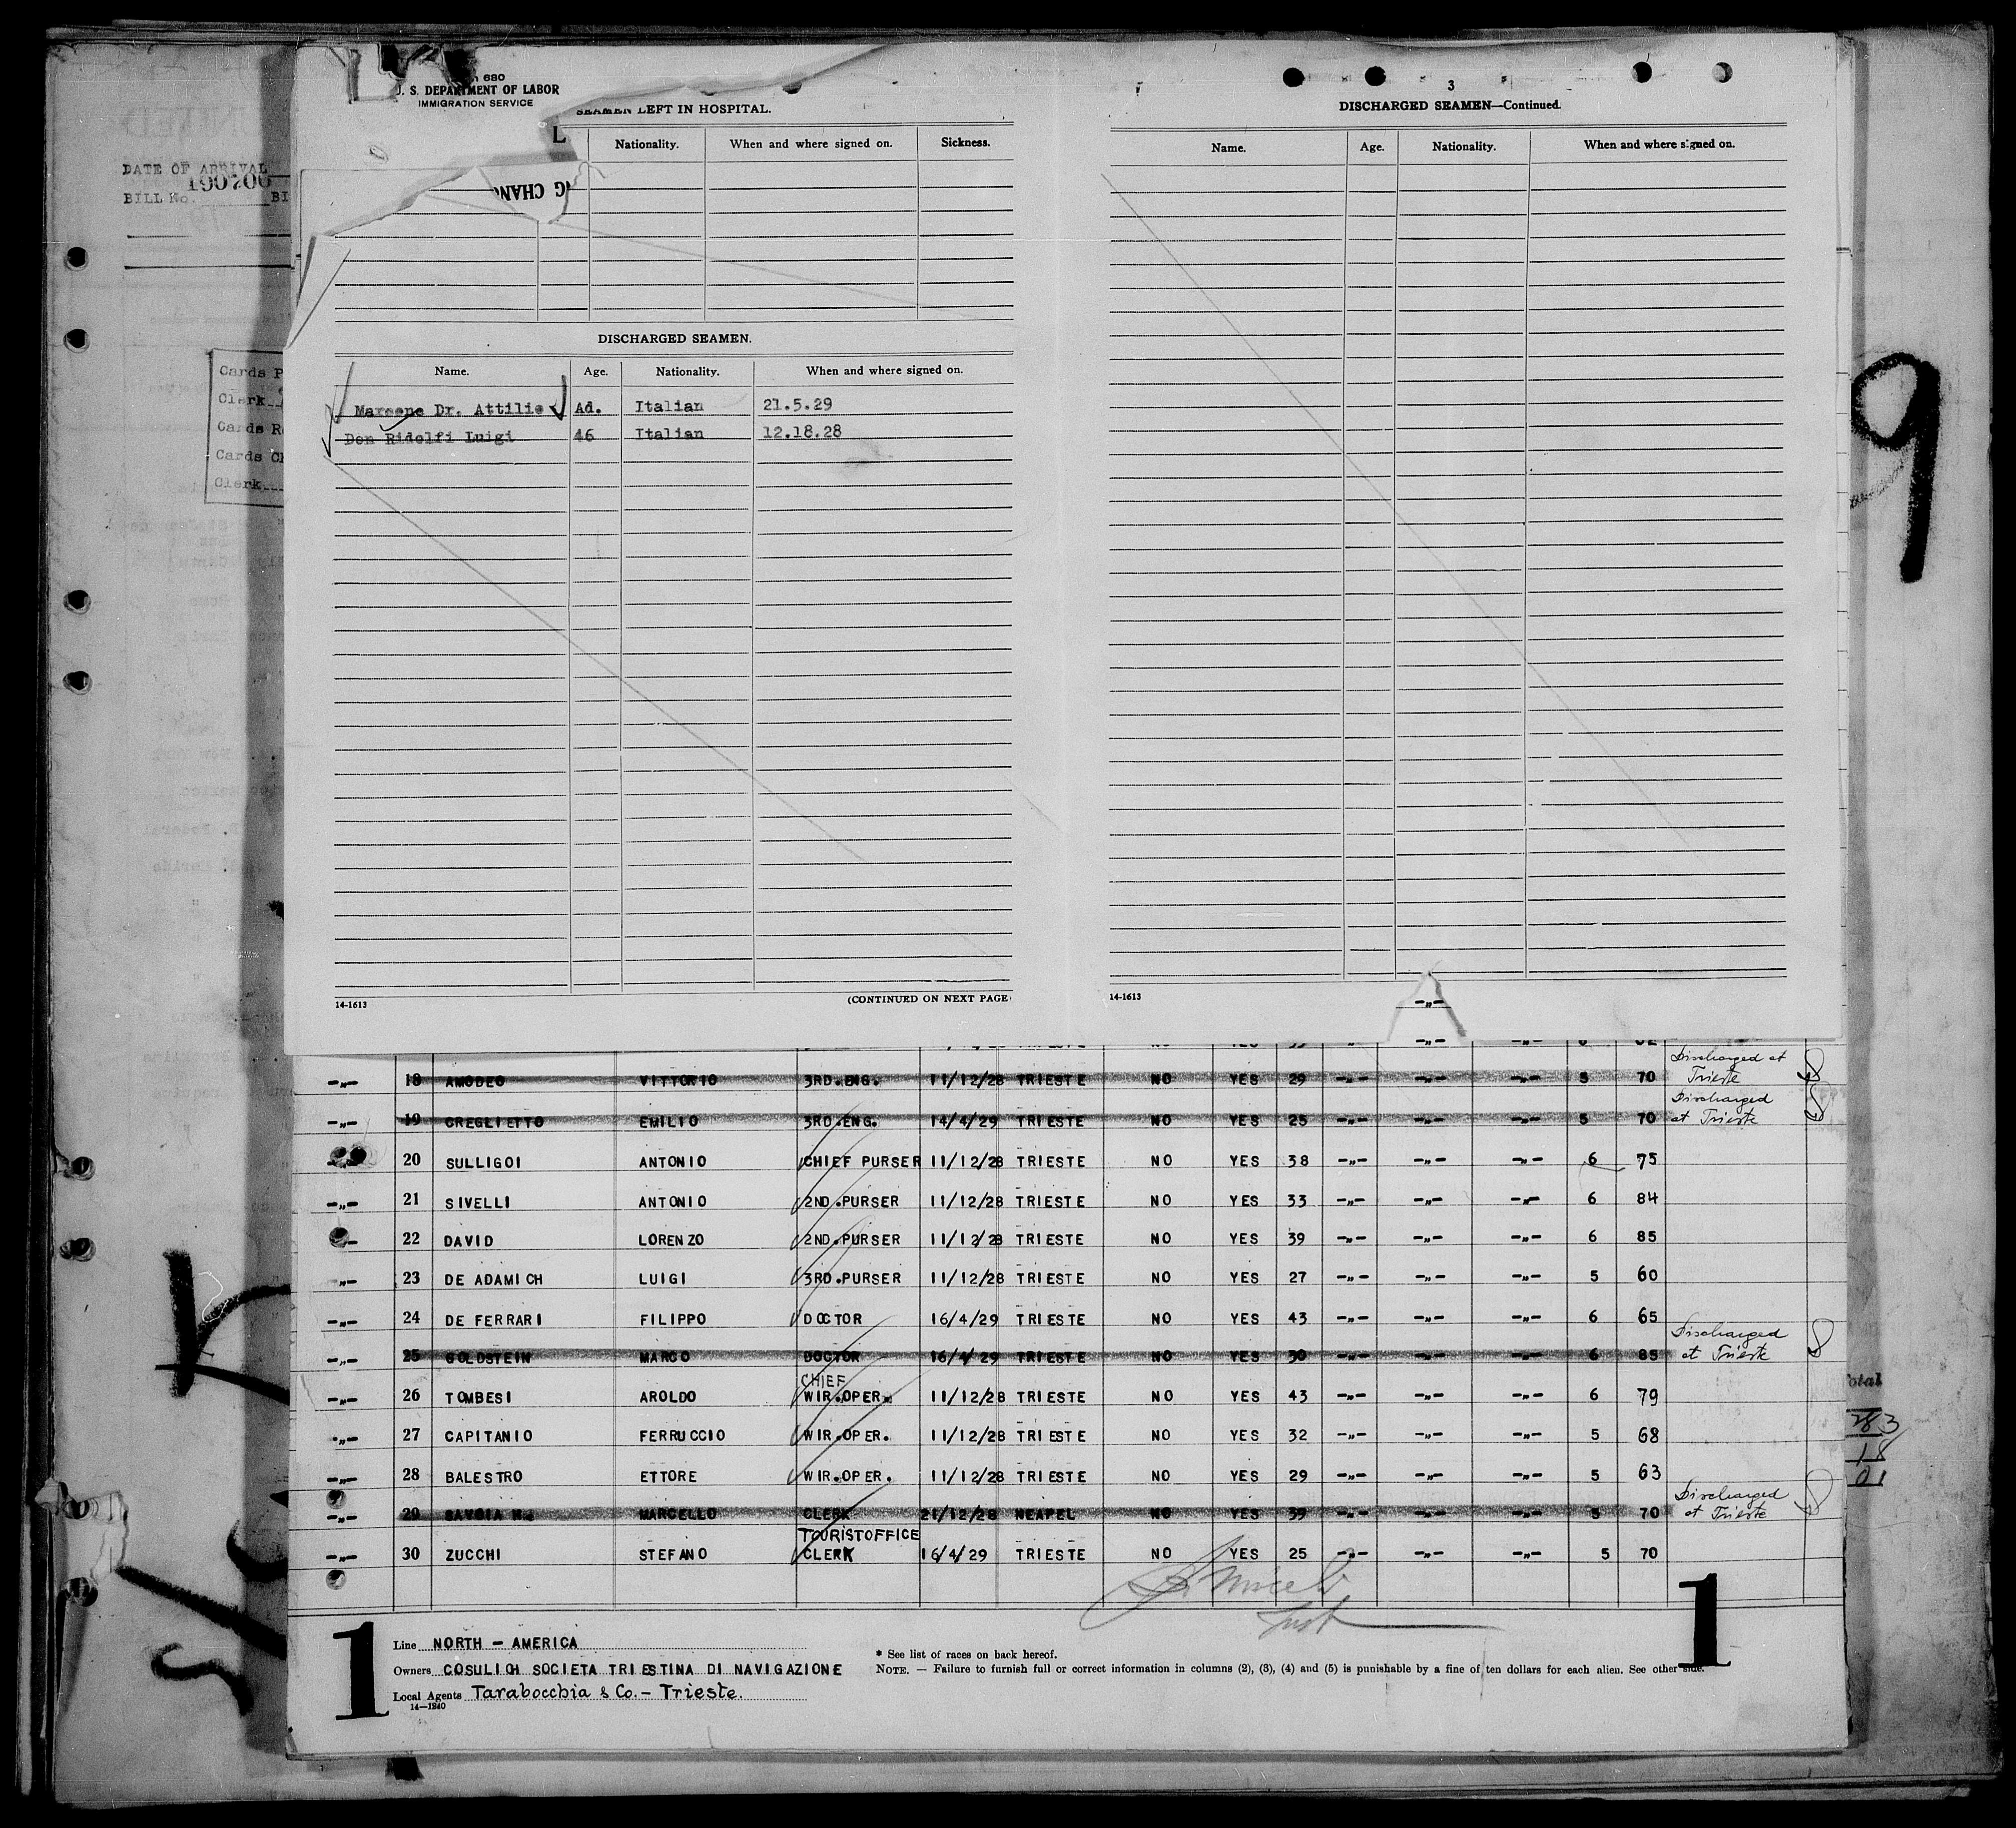 680
U. S. DEPARTMENT OF LABOR
IMMIGRATION SERVICE
SEAMEN LEFT IN HOSPITAL.
L
Nationality. When and where signed on. Sickness.
G CHAN
DISCHARGED SEAMEN.
Name. Age. Nationality. When and where signed on.
Marsene Dr. Attilio Ad. Italian 21.5.29
Don Ridolfi Luigi 46 Italian 12.18.28
14-1613 (CONTINUED ON NEXT PAGE
3
DISCHARGED SEAMEN—Continued.
Name. Age. Nationality. When and where signed on.
14-1613
DATE OF ARRIVAL
190206
BILL No. BI
Cards P
Clerk
Cards R
Cards C
Clerk
9
-„-
-„- 18 AMODEO VITTORIO 3RD.ENG. 11/12/28 TRIESTE NO YES 29 -„- -„- -„- 5 70 Discharged at Trieste
-„- 19 CREGLIETTO EMILIO 3RD.ENG. 14/4/29 TRIESTE NO YES 25 -„- -„- -„- 5 70 Discharged at Trieste
-„- 20 SULLIGOI ANTONIO CHIEF PURSER 11/12/28 TRIESTE NO YES 38 -„- -„- -„- 6 75
-„- 21 SIVELLI ANTONIO 2ND.PURSER 11/12/28 TRIESTE NO YES 33 -„- -„- -„- 6 84
22 DAVID LORENZO 2ND.PURSER 11/12/28 TRIESTE NO YES 39 -„- -„- -„- 6 85
-„- 23 DE ADAMICH LUIGI 3RD.PURSER 11/12/28 TRIESTE NO YES 27 -„- -„- -„- 5 60
-„- 24 DE FERRARI FILIPPO DOCTOR 16/4/29 TRIESTE NO YES 43 -„- -„- -„- 6 65
-„- 25 GOLDSTEIN MARCO DOCTOR 16/4/29 TRIESTE NO YES 30 -„- -„- -„- 6 85 Discharged at Trieste
-„- 26 TOMBESI AROLDO CHIEF WIR.OPER. 11/12/28 TRIESTE NO YES 43 -„- -„- -„- 6 79
-„- 27 CAPITANIO FERRUCCIO WIR.OPER. 11/12/28 TRIESTE NO YES 32 -„- -„- -„- 5 68
-„- 28 BALESTRO ETTORE WIR.OPER. 11/12/28 TRIESTE NO YES 29 -„- -„- -„- 5 63
-„- 29 SAVOIA MARCELLO CLERK 21/12/28 NEAPEL NO YES 39 -„- -„- -„- 5 70 Discharged at Trieste
-„- 30 ZUCCHI STEFANO TOURISTOFFICE CLERK 16/4/29 TRIESTE NO YES 25 -„- -„- -„- 5 70
otal
283
18
01
1
1
Line NORTH - AMERICA
Owners COSULICH SOCIETA TRIESTINA DI NAVIGAZIONE
Local Agents Tarabocchia & Co. - Trieste.
14—1240
* See list of races on back hereof.
NOTE. — Failure to furnish full or correct information in columns (2), (3), (4) and (5) is punishable by a fine of ten dollars for each alien. See other side.